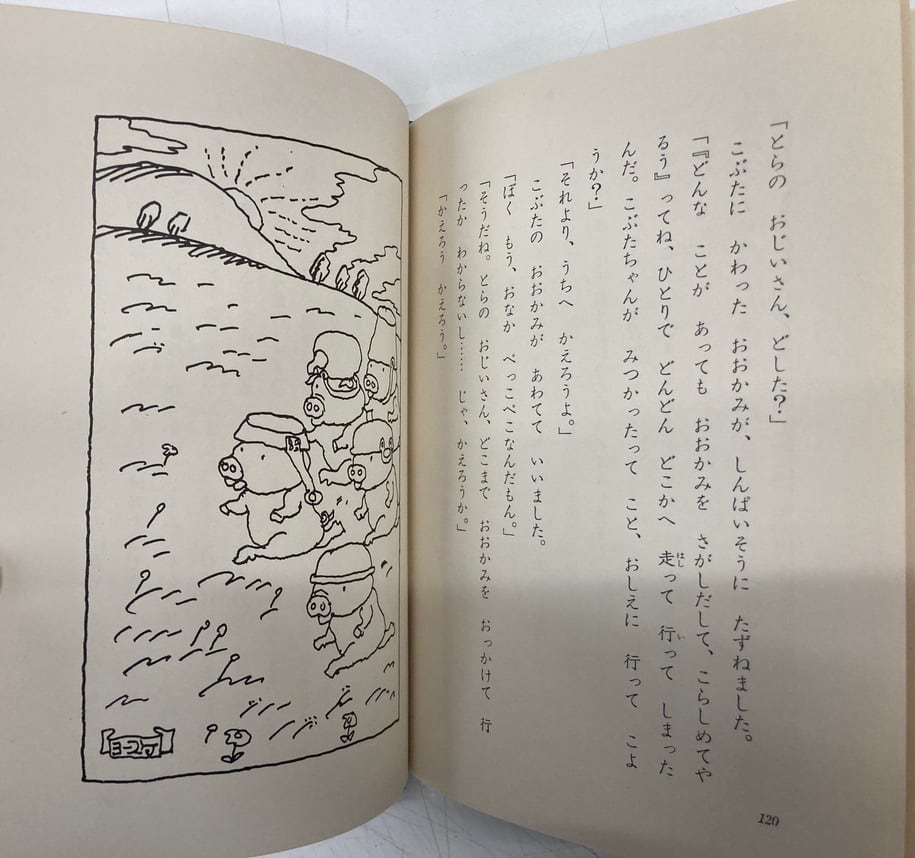 「とらの　おじいさん、どした?」
こぶたに　かわった　おおかみが、しんぱいそうに　たずねました。
「『どんな　ことが　あっても　おおかみを　さがしだして、こらしめてや
るう』ってね、ひとりで　どんどん　どこかへ　走って　行って　しまった
んだ。こぶたちゃんが　みつかったって　こと、おしえに　行って　こよ
うか?」
「それより、うちへ　かえろうよ。」
こぶたの　おおかみが　あわてて　いいました。
「ぼく　もう、おなか　ぺっこぺこなんだもん。」
「そうだね。とらの　おじいさん、どこまで　おおかみを　おっかけて　行
ったか　わからないし……　じゃ、かえろうか。」
「かえろう　かえろう。」
120